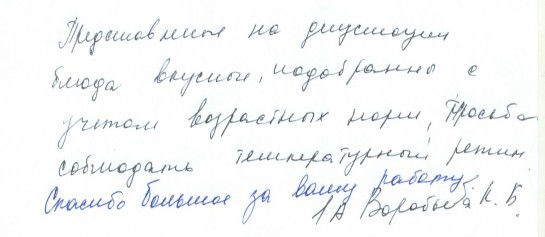 Представленые на дегустации
блюда вкусные, подобранны с
учетом возрастных норм, Просьба
соблюдать температурный режим
Спасибо большое за вашу работу.
1А Воробьева К. Б.